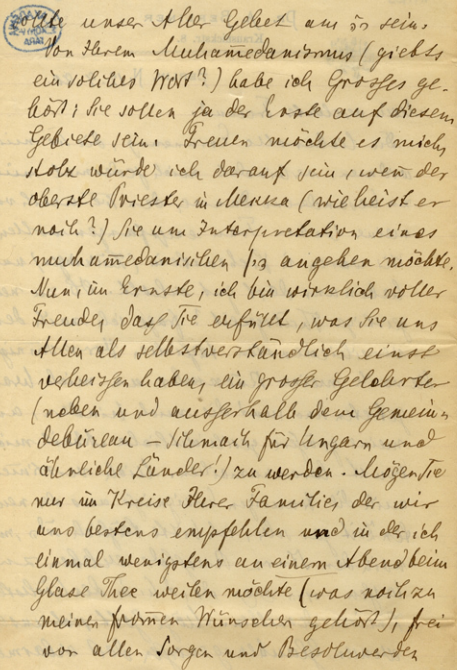 sollte unser Aller Gebet am ביז sein.
Von Ihrem Muham̅edanismus (giebts
ein solches Wort?) habe ich Grosses ge-
hört; Sie sollen ja der Erste auf diesem
Gebiete sein. Freuen möchte es mich,
stolz würde ich darauf sein, wen̅ der
oberste Priester in Mekka (wie heist er
noch?) Sie um Interpretation eines
muham̅edanischen דין angehen möchte.
Nun, im Ernste, ich bin wirklich voller
Freude, dass Sie erfüllt, was Sie uns
Allen als selbstverständlich einst
verheissen haben, ein grosser Gelehrter
(neben und ausserhalb dem Gemein-
debüreau – Schmach für Ungarn und
ähnliche Länder!) zu werden. Mögen Sie
nur im Kreise Ihrer Familie, der wir
uns bestens empfehlen und in der ich
einmal wenigstens an einem Abend beim
Glase Thee weilen möchte (was noch zu
meinen from̅en Wünschen gehört), frei
von allen Sorgen und Beschwerden